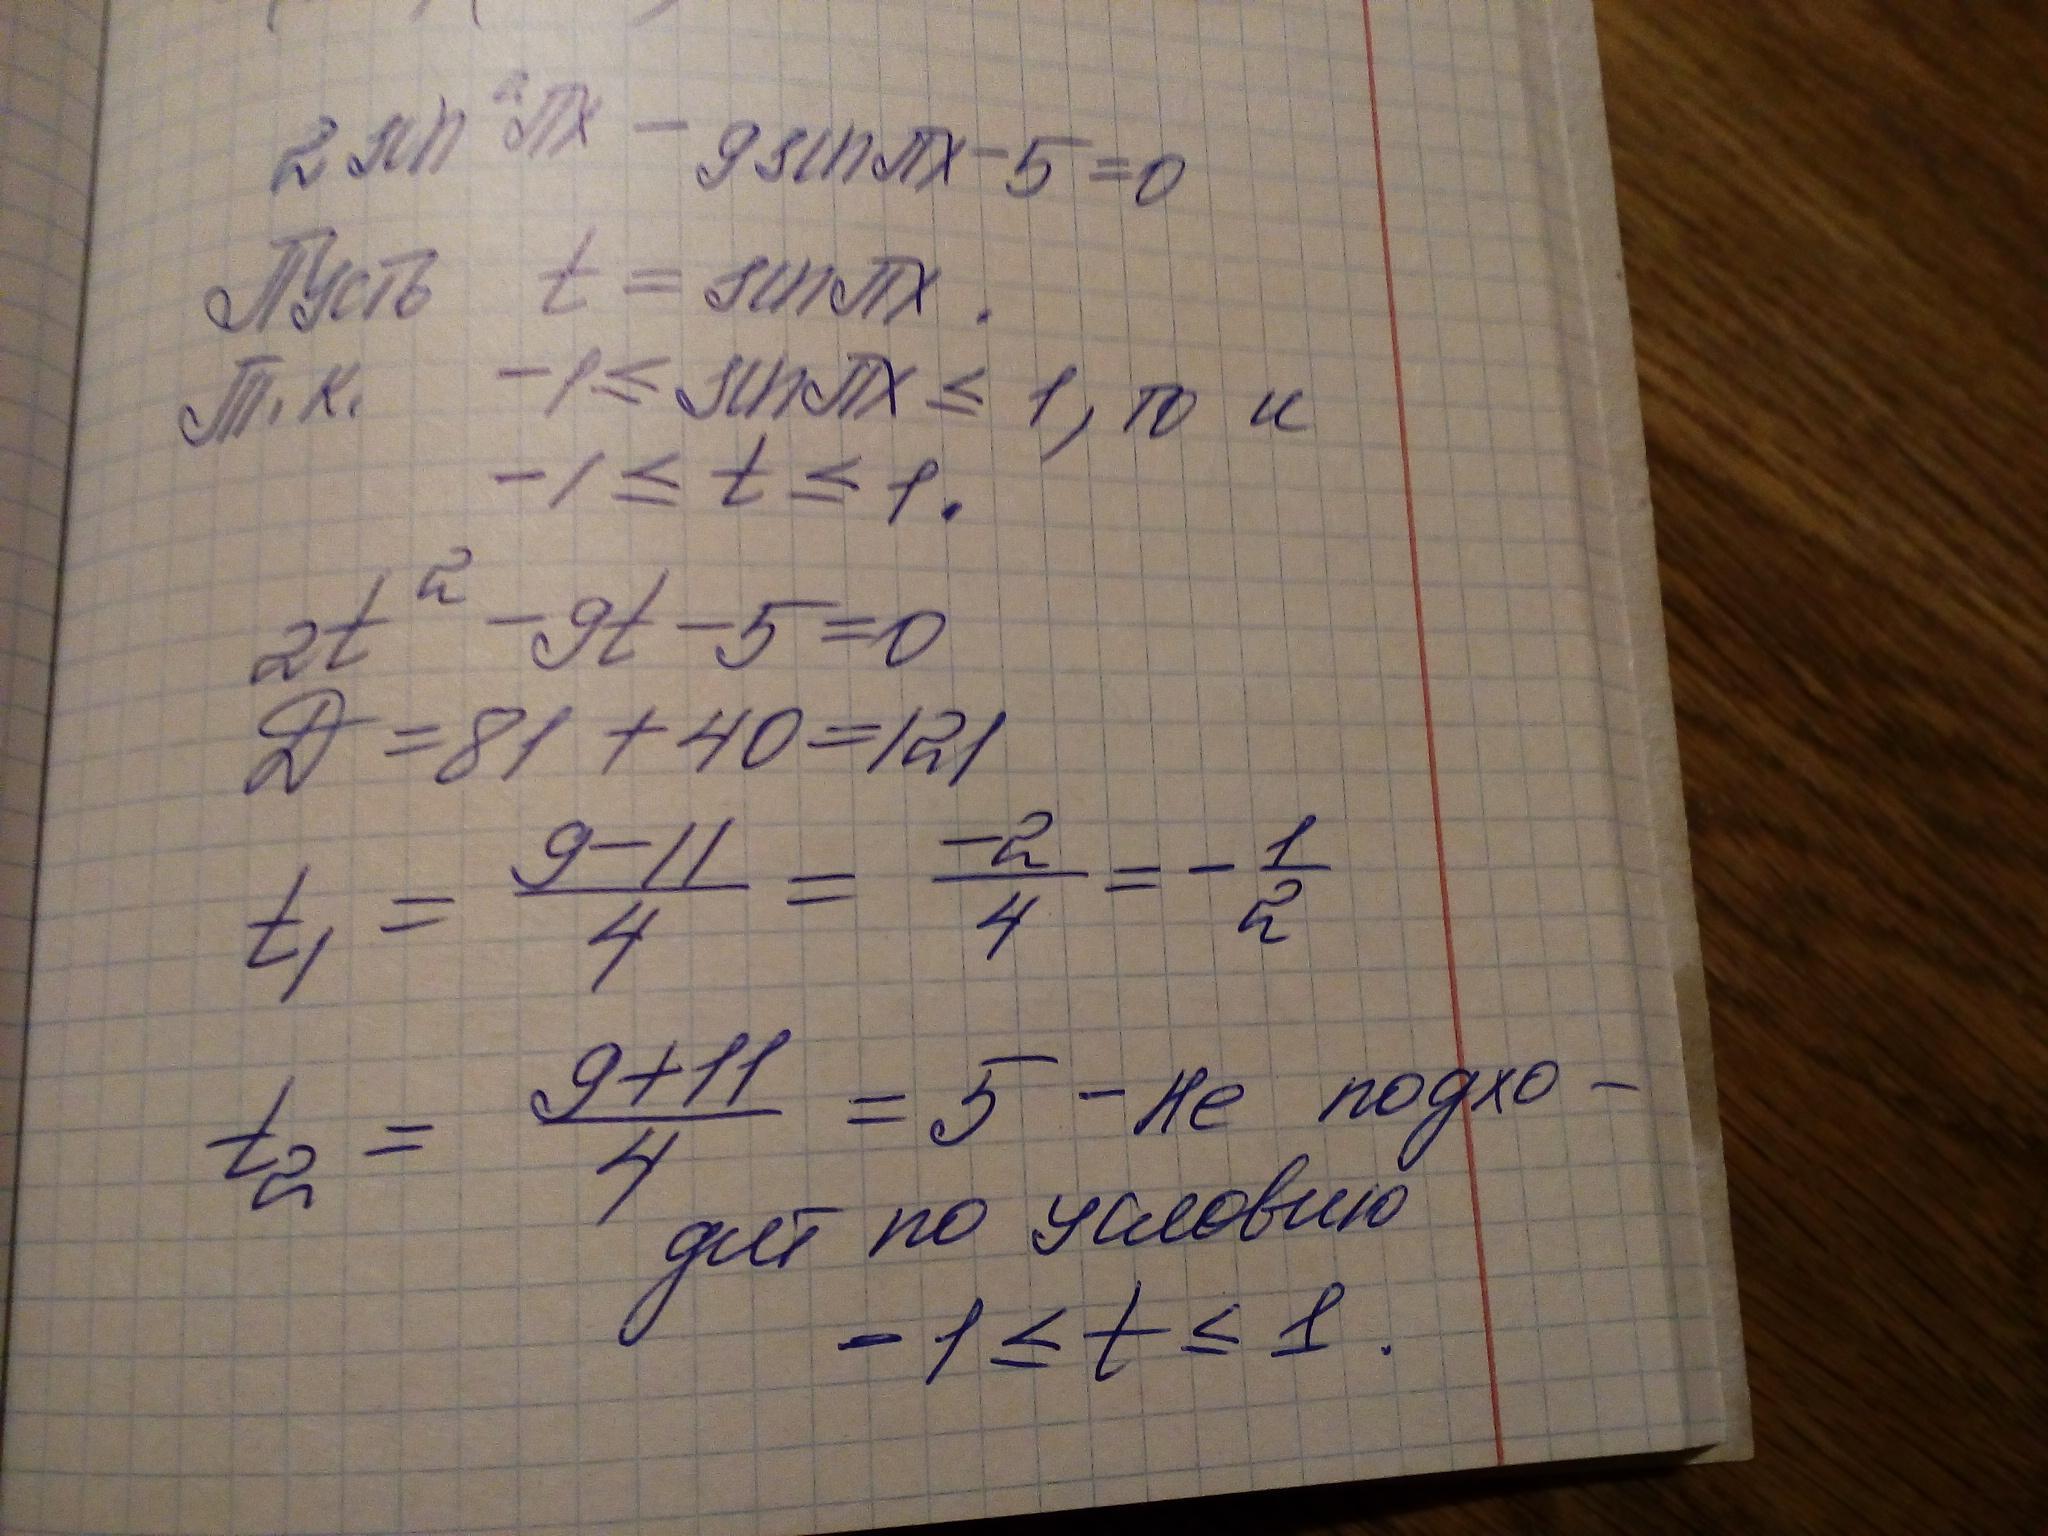 2 sin²πx - 9 sin πx - 5 = 0
Пусть t = sin πx.
Т.к. -1 ≤ sin πx ≤ 1, то и
-1 ≤ t ≤ 1.
2t² - 9t - 5 = 0
D = 81 + 40 = 121
t₁ = (9-11)/4 = -2/4 = -1/2
t₂ = (9+11)/4 = 5 - не подхо-
дит по условию
-1 ≤ t ≤ 1.